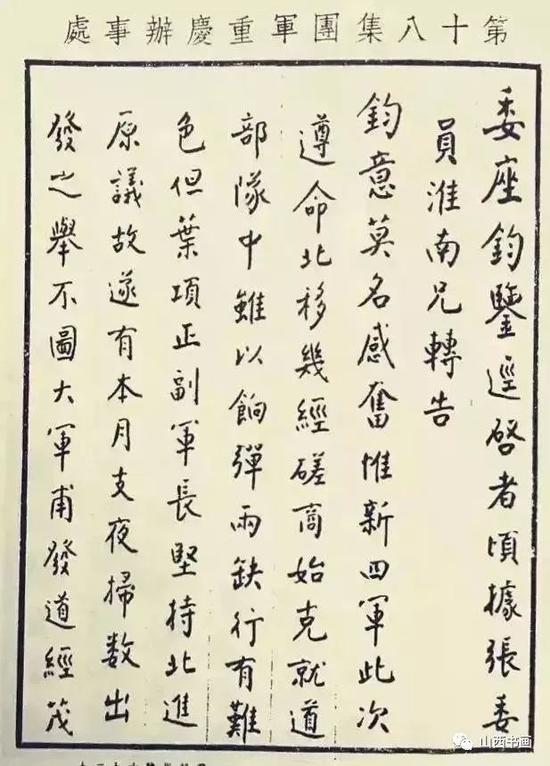 第十八集團軍重慶辦事處
委座鈞鑒逕啓者頃據張委
員淮南兄轉告
鈞意莫名感奮惟新四軍此次
遵命北移幾經磋商始克就道
部隊中雖以餉彈兩缺行有難
色但葉項正副軍長堅持北進
原議故遂有本月支夜掃数出
發之舉不圖大軍甫發道經茂
山西书画